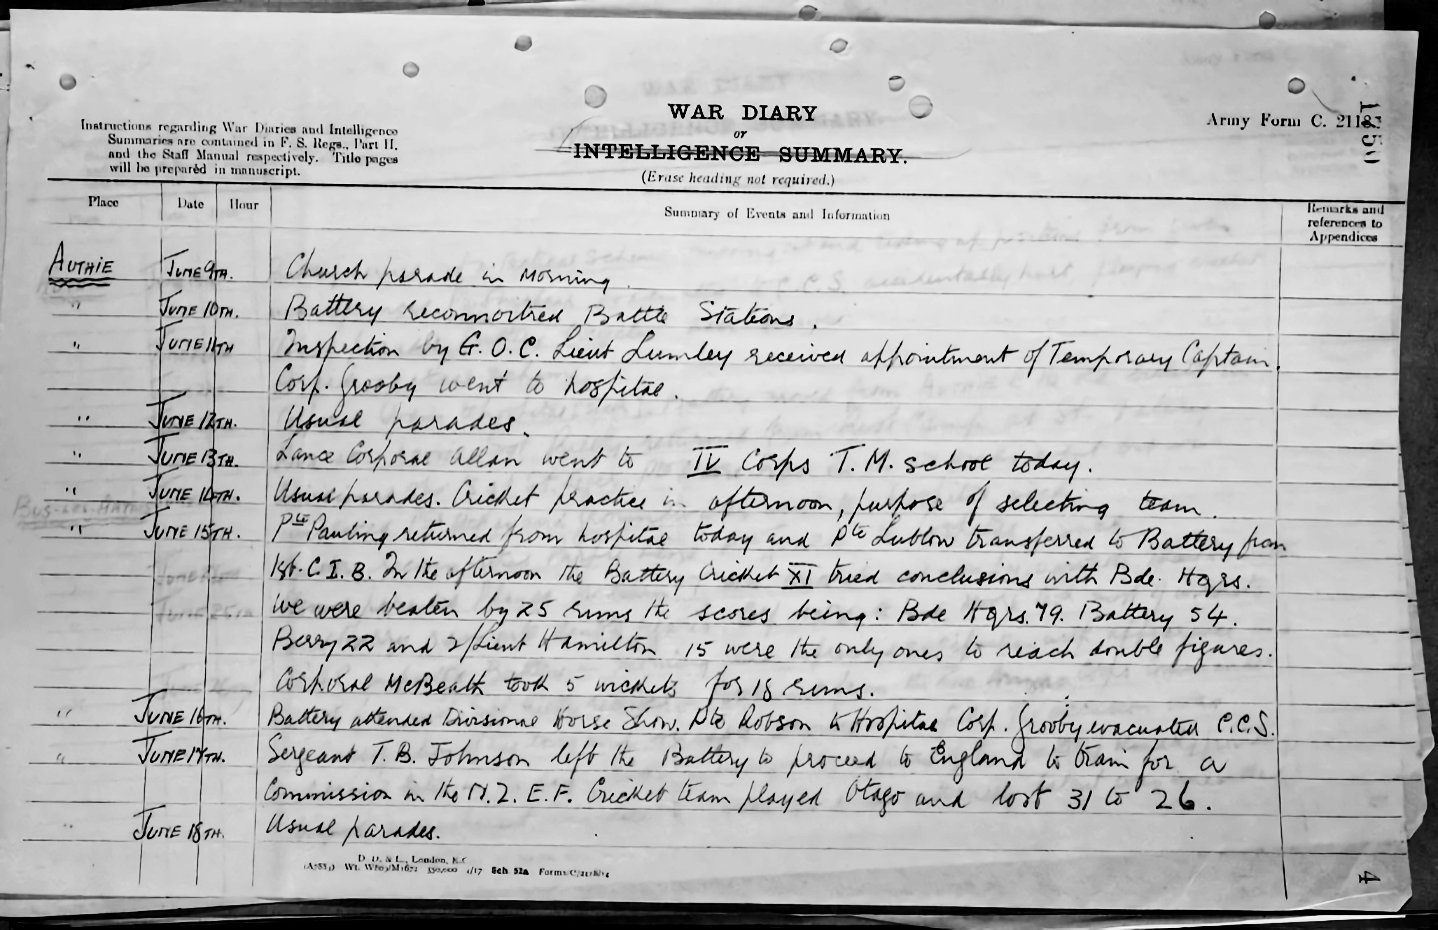 WAR DIARY
or
INTELLIGENCE SUMMARY.
(Erase heading not required.)
Instructions regarding War Diaries and Intelligence
Summaries are contained in F. S. Regs., Part II.
and the Staff Manual respectively. Title pages
will be prepared in manuscript.
Army Form C. 2118.
Place Date Hour Summary of Events and Information Remarks and references to Appendices
AUTHIE JUNE 9TH. Church parade in Morning.
" JUNE 10TH. Battery reconnoitred Battle Stations.
" JUNE 11TH Inspection by G.O.C. Lieut Lumley received appointment of Temporary Captain.
Corp. Grooby went to hospital.
" JUNE 12TH. Usual parades.
" JUNE 13TH. Lance Corporal Allan went to IV Corps T.M. School today.
" JUNE 14TH. Usual parades. Cricket practice in afternoon, purpose of selecting team.
" JUNE 15TH. Pte Pauling returned from hospital today and Pte Lublow transferred to Battery from
1st. C.I.B. In the afternoon the Battery Cricket XI tried conclusions with Bde. Hqrs.
We were beaten by 25 runs the scores being: Bde Hqrs. 79. Battery 54.
Berry 22 and 2/Lieut Hamilton 15 were the only ones to reach double figures.
Corporal McBeath took 5 wickets for 18 runs.
" JUNE 16TH. Battery attended Divisional Horse Show. Pte Robson to Hospital Corp. Grooby evacuated C.C.S.
" JUNE 17TH. Sergeant T. B. Johnson left the Battery to proceed to England to train for a
Commission in the N.Z.E.F. Cricket team played Otago and lost 31 to 26.
" JUNE 18TH. Usual parades.
D. D. & L., London, E.C.
Sch 52a
4